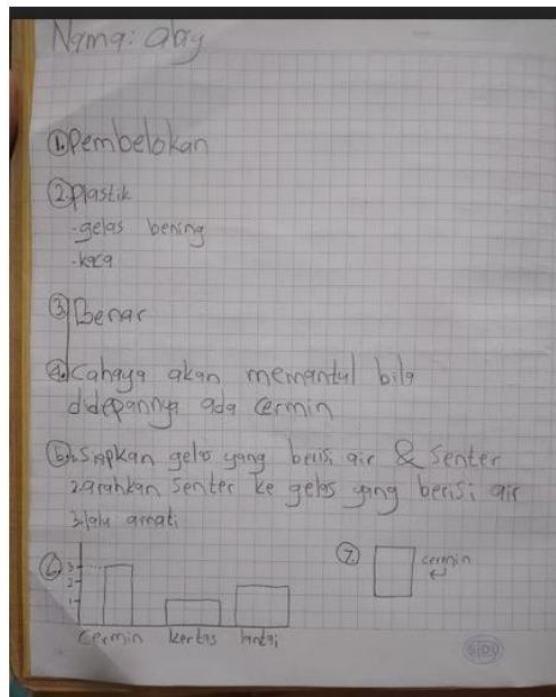 Nama: Abiy
① Pembelokan
② Plastik
- gelas bening
- kaca
③ Benar
④ Cahaya akan memantul bila
didepannya ada cermin
⑤ 1. Siapkan gelas yang berisi air & Senter
2. arahkan senter ke gelas yang berisi air
3. lalu amati
⑥ 3
2
1
cermin kertas lantai
⑦ cermin
SIDU